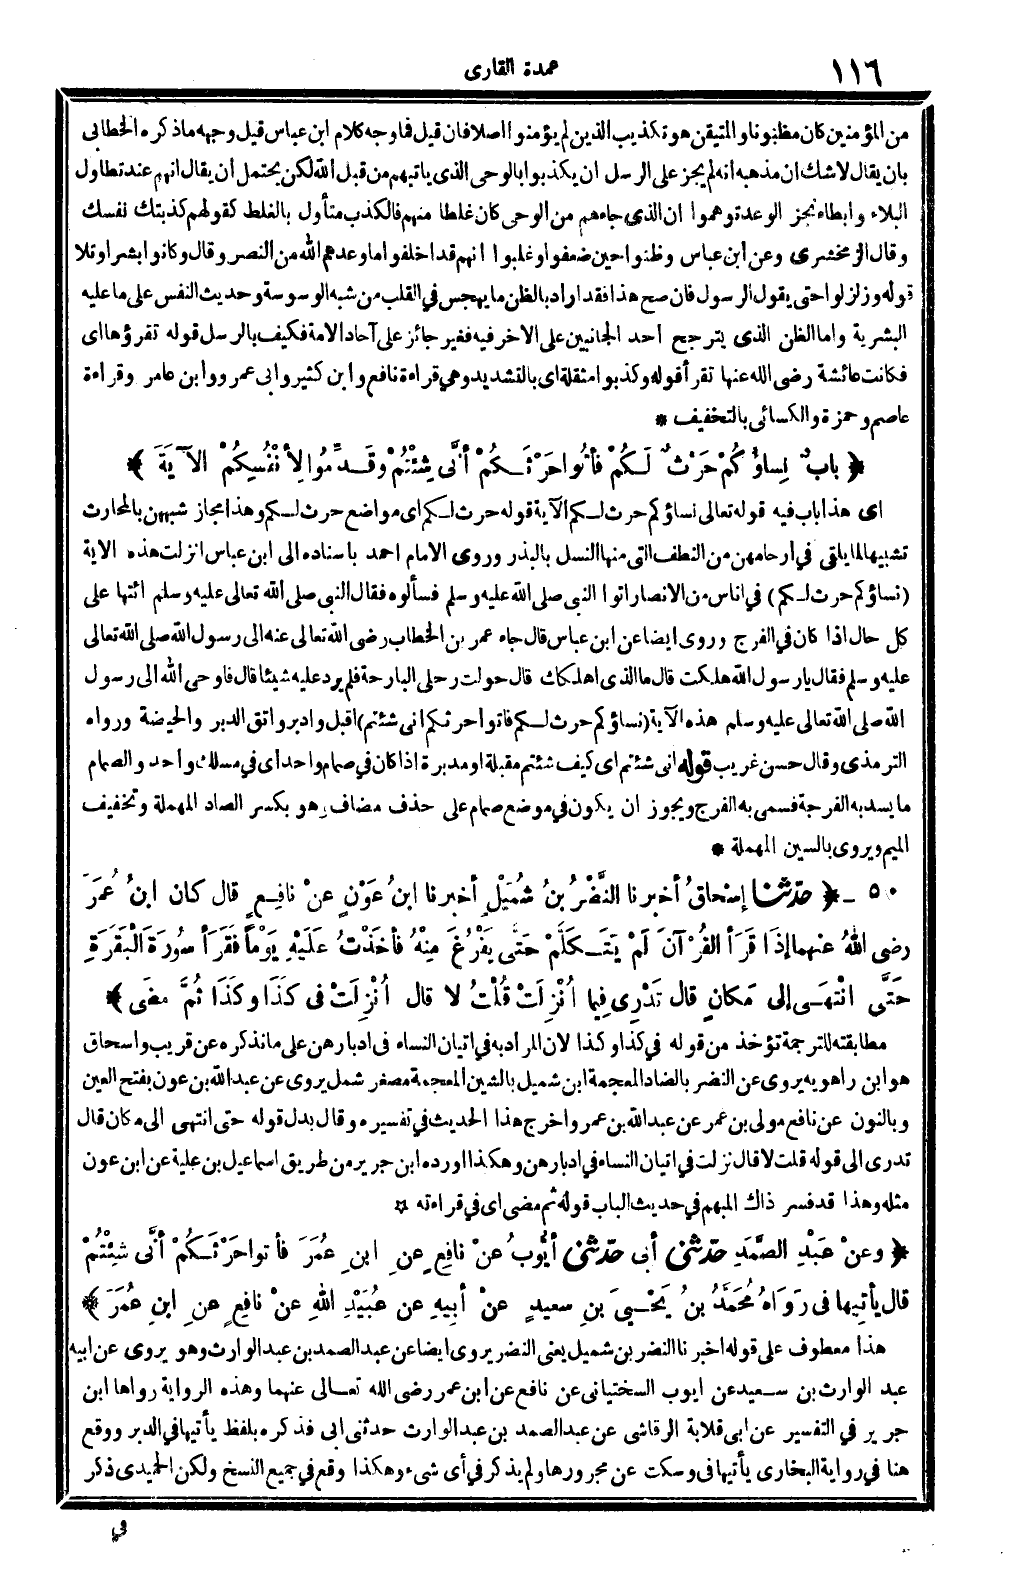 ١١٦
عمدة القارى
من المؤمنين كان مظنونا والمتيقن هو تكذيب الذين لم يؤمنوا اصلا فان قيل فما وجه كلام ابن عباس قيل وجهه ما ذكره الخطابى
بان يقال لا شك ان مذهبه انه لم يجز على الرسل ان يكذبوا بالوحى الذى ياتيهم من قبل الله لكن يحتمل أن يقال انهم عند تطاول
البلاء وابطاء نجز الوعد توهموا ان الذى جاءهم من الوحى كان غلطا منهم فالكذب متأول بالغلط كقولهم كذبتك نفسك
وقال الزمخشرى وعن ابن عباس وظنوا حين ضعفوا وغلبوا انهم قد اخلفوا ما وعدهم الله من النصر وقال وكانوا بشرا وتلا
قوله وزلزلوا حتى يقول الرسول فان صح هذا فقد اراد بالظن ما يهجس في القلب من شبه الوسوسة وحديث النفس على ما عليه
البشرية واما الظن الذى يترجح احد الجانبين على الاخر فيه فغير جائز على آحاد الامة فكيف بالرسل قوله تفرؤها اى
فكانت عائشة رضى الله عنها تقرأ قوله وكذبوا مثقلة اى بالتشديد وهي قراءة نافع وابن كثير وابى عمرو وابن عامر وقراءة
عاصم وحمزة والكسائى بالتخفيف *
﴿ بابٌ نِساؤُكُمْ حَرْثٌ لَـكُمْ فَأْتُوا حَرْثَـكُمْ أنَّى شِئْتُمْ وقَدِّمُوا لِأنْفُسِكُمْ الآيَةَ ﴾
اى هذا باب فيه قوله تعالى نساؤكم حرث لـكم الآية قوله حرث لـكم اى مواضع حرث لـكم وهذا مجاز شبهن بالمحارث
تشبيها لما يلقى في ارحامهن من النطف التى منها النسل بالبذر وروى الامام احمد باسناده الى ابن عباس انزلت هذه الاية
(نساؤكم حرث لـكم) في اناس من الانصار اتوا النبى صلى الله عليه وسلم فسألوه فقال النبى صلى الله تعالى عليه وسلم ائتها على
كل حال اذا كان في الفرج وروى ايضا عن ابن عباس قال جاء عمر بن الخطاب رضى الله تعالى عنه الى رسول الله صلى الله تعالى
عليه وسلم فقال يا رسول الله هلكت قال ما الذى اهلكك قال حولت رحلى البارحة فلم يرد عليه شيئا قال فاوحى الله الى رسول
الله صلى الله تعالى عليه وسلم هذه الآية (نساؤكم حرث لـكم فاتوا حرثكم انى شئتم) اقبل وادبر واتق الدبر والحيضة ورواه
الترمذى وقال حسن غريب قوله انى شئتم اى كيف شئتم مقبلة او مدبرة اذا كان في صمام واحد اى في مسلك واحد والصمام
ما يسد به الفرجة فسمى به الفرج ويجوز ان يكون في موضع صمام على حذف مضاف وهو بكسر الصاد المهملة وتخفيف
الميم ويروى بالسين المهملة *
٥٠ ـ ﴿ حدّثنا إسْحاقُ أخبرنا النَّضْرُ بنُ شُمَيْلٍ أخبرنا ابنُ عَوْنٍ عنْ نافِعٍ قال كان ابنُ عُمَرَ
رضى اللهُ عنهما إذَا قَرَأ القُرْآنَ لَمْ يَتَـكَلَّمْ حَتَّى يَفْرُغَ مِنْهُ فأخَذْتُ عَلَيْهِ يَوْماً فَقَرَأ سُورَةَ الْبَقَرَةِ
حَتَّى انْتَهَـى إلى مَكانٍ قال تَدْرِى فِيما أُنْزِلَتْ قُلْتُ لا قال أُنْزِلَتْ فى كَذَا وكَذَا ثُمَّ مضَى ﴾
مطابقته للترجمة تؤخذ من قوله في كذا وكذا لان المراد به في اتيان النساء فى ادبارهن على ما نذكره عن قريب واسحاق
هو ابن راهويه يروى عن النضر بالضاد المعجمة ابن شميل بالشين المعجمة مصغر شمل يروى عن عبد الله بن عون بفتح العين
وبالنون عن نافع مولى بن عمر عن عبد الله بن عمر واخرج هذا الحديث في تفسيره وقال بدل قوله حتى انتهى الى مكان قال
تدرى الى قوله قلت لا قال نزلت في اتيان النساء في ادبارهن وهكذا اورده ابن جرير من طريق اسماعيل بن علية عن ابن عون
مثله وهذا قد فسر ذاك المبهم في حديث الباب قوله ثم مضى اى في قراءته *
﴿ وعنْ عَبْدِ الصَّمَدِ حدّثنى أبى حدّثنى أيُّوبُ عنْ نافِعٍ عنِ ابنِ عُمَرَ فأتوا حَرْثَـكُمْ أنَّى شِئْتُمْ
قال يأتِيها فى رَوَاهُ مُحَمَّدُ بنُ يَحْـيىَ بنِ سعيدٍ عنْ أبِيهِ عن عُبَيْدِ اللهِ عنْ نافِعٍ عنِ ابنِ عُمَرَ ﴾ *
هذا معطوف على قوله اخبرنا النضر بن شميل يعنى النضر يروى ايضا عن عبد الصمد بن عبد الوارث وهو يروى عن ابيه
عبد الوارث بن سـعيد عن ايوب السختيانى عن نافع عن ابن عمر رضى الله تعـالى عنهما وهذه الرواية رواها ابن
جرير في التفسير عن ابى قلابة الرقاشى عن عبد الصمد بن عبد الوارث حدثنى ابى فذكره بلفظ يأتيها في الدبر ووقع
هنا في رواية البخارى يأتيها فى وسكت عن مجرورها ولم يذكر في أى شىء وهكذا وقع في جميع النسخ ولكن الحميدى ذكر
في